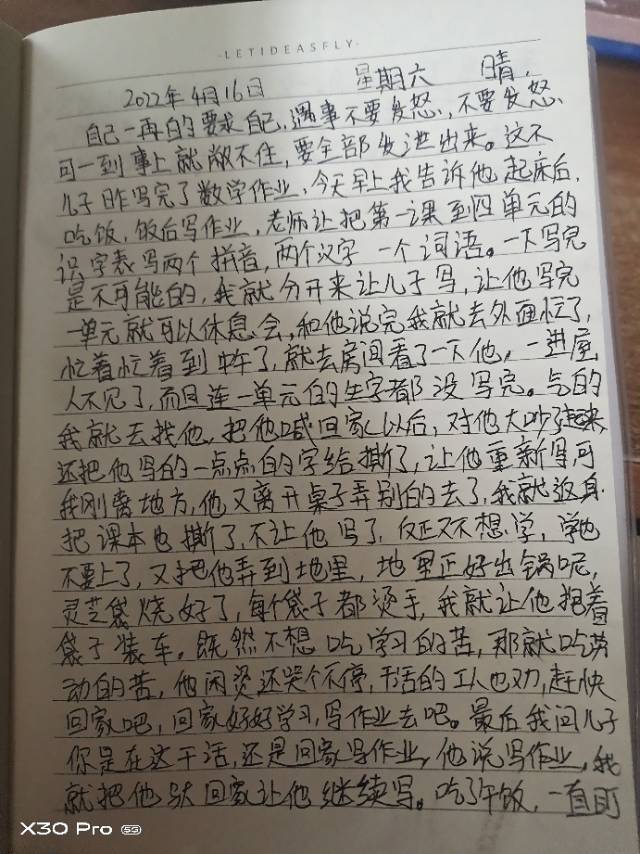 ·LETIDEASFLY·
2022年4月16日 星期六 晴.
自己一再的要求自己,遇事不要发怒,不要发怒、
可一到事上就敞不住,要全部发泄出来。这不
儿子昨写完了数学作业,今天早上我告诉他起床后,
吃饭,饭后写作业,老师让把第一课到四单元的
识字表写两个拼音,两个汉字一个词语。一下写完
是不可能的,我就分开来让儿子写,让他写完
一单元就可以休息会,和他说完我就去外面忙了,
忙着忙着到中午了,就去房间看了一下他,一进屋
人不见了,而且连一单元的生字都没写完。气的
我就去找他,把他喊回家以后,对他大吵了起来,
还把他写的一点点的字给撕了,让他重新写,可
我刚离地方,他又离开桌子弄别的去了,我就返身
把课本也撕了,不让他写了,反正又不想学,学也
不要上了,又把他弄到地里,地里正好出锅呢,
灵芝袋烧好了,每个袋子都烫手,我就让他抱着
袋子装车。既然不想吃学习的苦,那就吃劳
动的苦,他闲烫还哭个不停,干活的工人也劝,赶快
回家吧,回家好好学习,写作业去吧。最后我问儿子
你是在这干活,还是回家写作业,他说写作业,我
就把他驮回家让他继续写。吃了午饭,一直盯
X30 Pro 5G